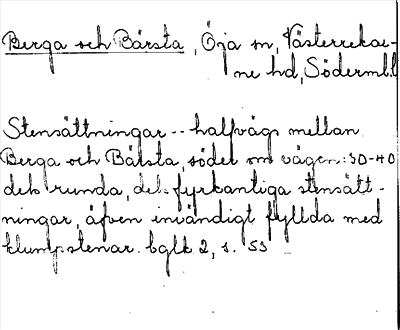 Berga och Bårsta, Öja sn, Västerrekar-
ne hd, Söderml.
Stensättningar -- halfvägs mellan
Berga och Bårsta, söder om vägen: 30-40
dels runda, dels fyrkantiga stensätt-
ningar, äfven invändigt fyllda med
klumpstenar. bglk 2, s. 53